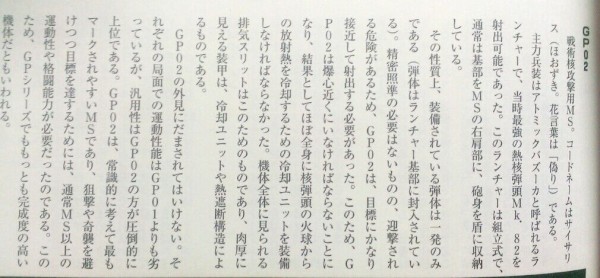 GP02
戦術核攻撃用MS。コードネームはサイサリ
ス（ほおずき。花言葉は「偽り」）である。
主力兵装はアトミックバズーカと呼ばれるラ
ンチャーで、当時最強の熱核弾頭Mk.82を
射出可能であった。このランチャーは組立式で、
通常は基部をMSの右肩部に、砲身を盾に収納
している。
その性質上、装備されている弾体は一発のみ
である（弾体はランチャー基部に封入されてい
る）。精密照準の必要はないものの、迎撃され
る危険があるため、GP02は、目標にかなり
接近して射出する必要があった。このため、G
P02は爆心近くにいなければならないことに
なり、結果としてほぼ全身に核弾頭の火球から
の放射熱を冷却するための冷却ユニットを装備
しなければならなかった。機体全体に見られる
排気スリットはこのためのものであり、肉厚に
見える装甲は、冷却ユニットや熱遮断構造によ
るものである。
GP02の外見にだまされてはいけない。そ
れぞれの局面での運動性能はGP01よりも劣
っているが、汎用性はGP02の方が圧倒的に
上位である。GP02は、常識的に考えて最も
マークされやすいMSであり、狙撃や奇襲を避
けつつ目標を達するためには、通常MS以上の
運動性や格闘能力が必要だったのである。この
ため、GPシリーズでももっとも完成度の高い
機体だともいわれる。